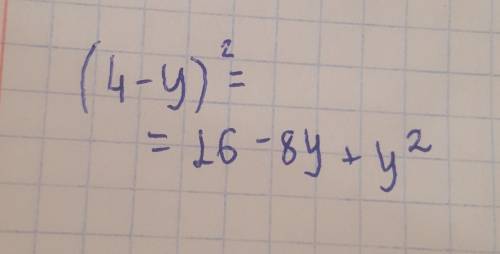 (4-y)²=
= 16-8y+y²